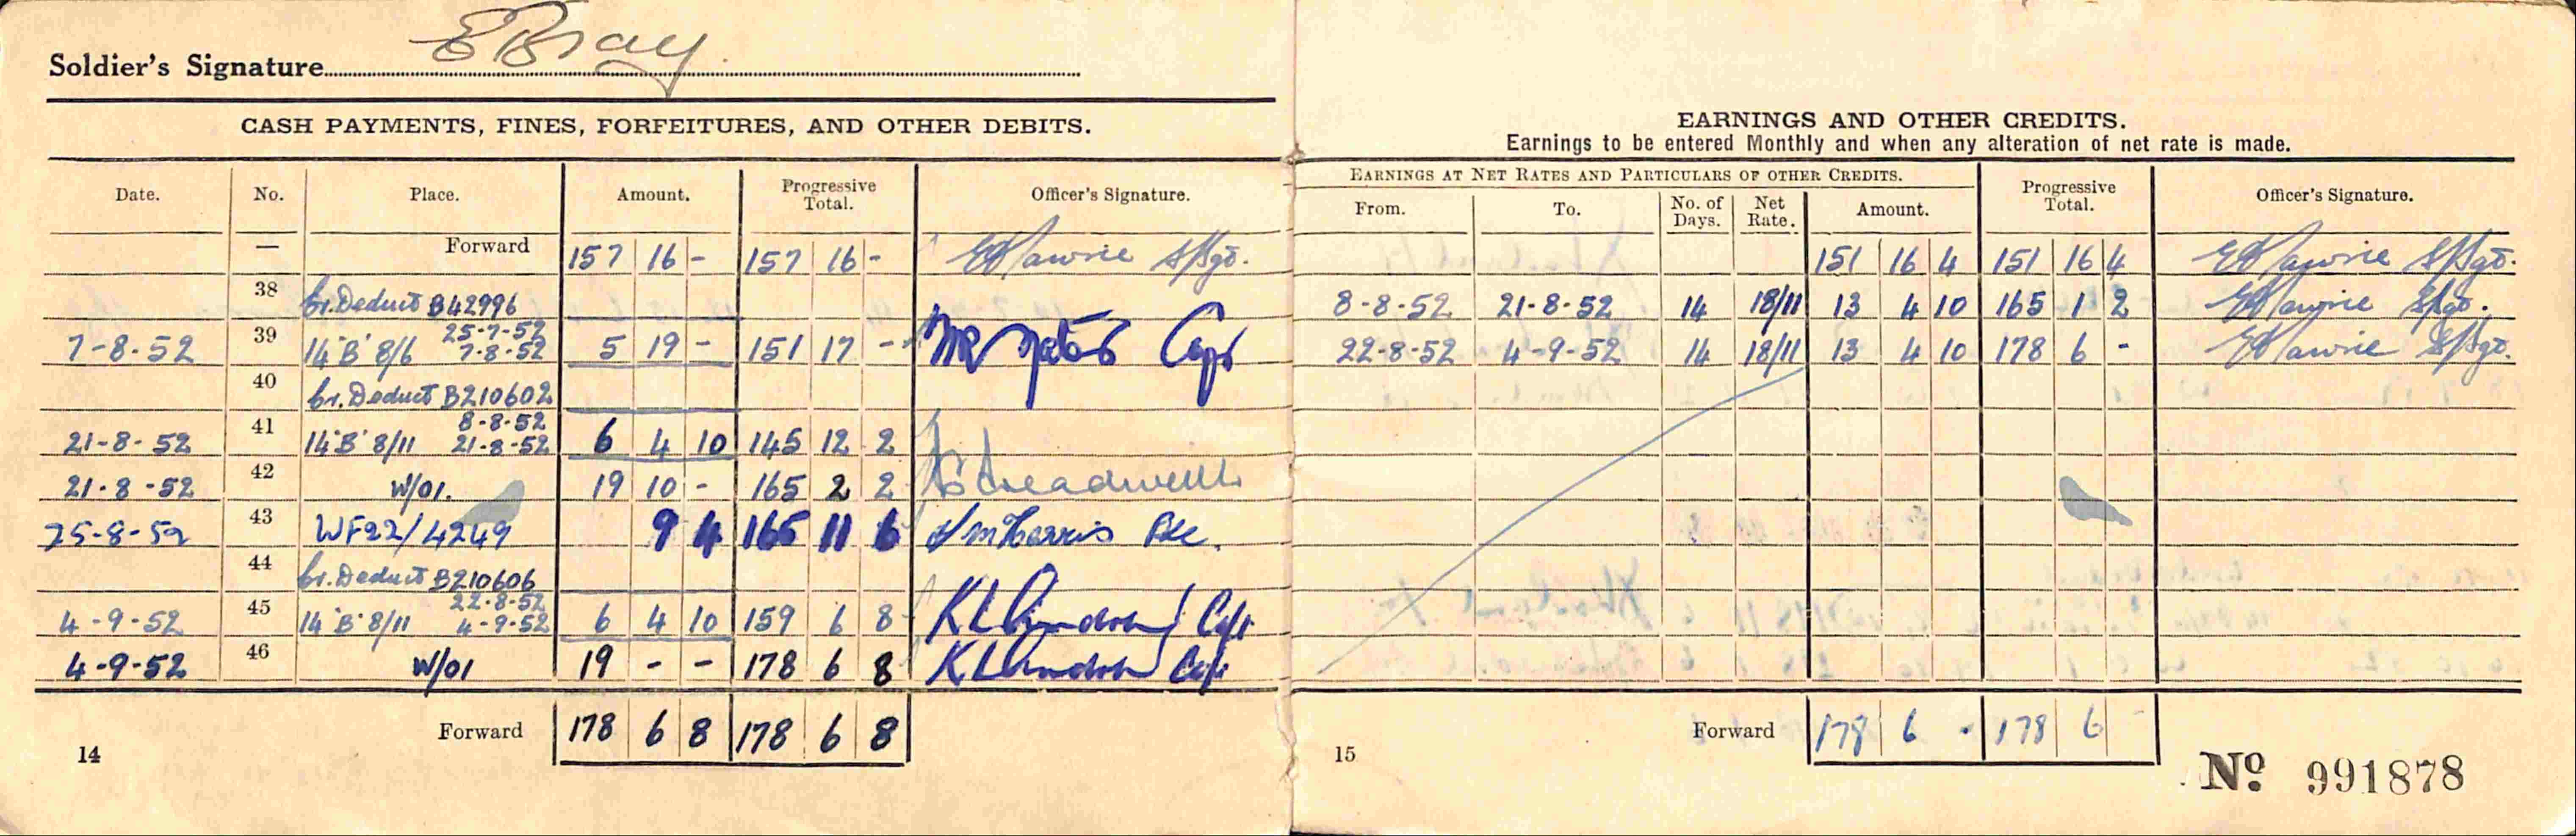 Soldier's Signature E Bray
CASH PAYMENTS, FINES, FORFEITURES, AND OTHER DEBITS.
Date. No. Place. Amount. Progressive Total. Officer's Signature.
— Forward 157 16 - 157 16 - S/Sgt.
38 Cr. Deduct B42996
25-7-52
7-8-52 39 14 'B' 8/6 7-8-52 5 19 - 151 17 - Capt
40 Cr. Deduct B210602
8-8-52
21-8-52 41 14 'B' 8/11 21-8-52 6 4 10 145 12 2
21-8-52 42 W/01. 19 10 - 165 2 2 Treadwell
25-8-52 43 WF22/4249 9 4 165 11 6 Harris Pte.
44 Cr. Deduct B210606
22-8-52
4-9-52 45 14 'B' 8/11 4-9-52 6 4 10 159 6 8 K L Capt
4-9-52 46 W/01 19 - - 178 6 8 K L Capt
Forward 178 6 8 178 6 8
14
EARNINGS AND OTHER CREDITS.
Earnings to be entered Monthly and when any alteration of net rate is made.
EARNINGS AT NET RATES AND PARTICULARS OF OTHER CREDITS. Progressive Total. Officer's Signature.
From. To. No. of Days. Net Rate. Amount.
151 16 4 151 16 4 S/Sgt.
8-8-52 21-8-52 14 18/11 13 4 10 165 1 2 S/Sgt.
22-8-52 4-9-52 14 18/11 13 4 10 178 6 - S/Sgt.
Forward 178 6 - 178 6 -
15
No. 991878